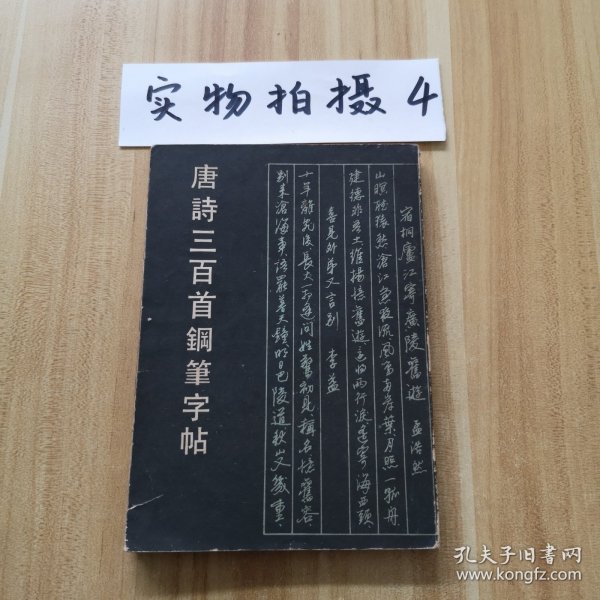 实物拍摄 4
唐詩三百首鋼筆字帖
宿桐廬江寄廣陵舊遊 孟浩然
山暝聽猿愁滄江急夜流風鳴兩岸葉月照一孤舟
建德非吾土維揚憶舊遊還將兩行淚遙寄海西頭
喜見外弟又言別 李益
十年離亂後長大一相逢問姓驚初見稱名憶舊容
別來滄海事語罷暮天鐘明日巴陵道秋山又幾重
孔夫子旧书网
www.kongfz.com